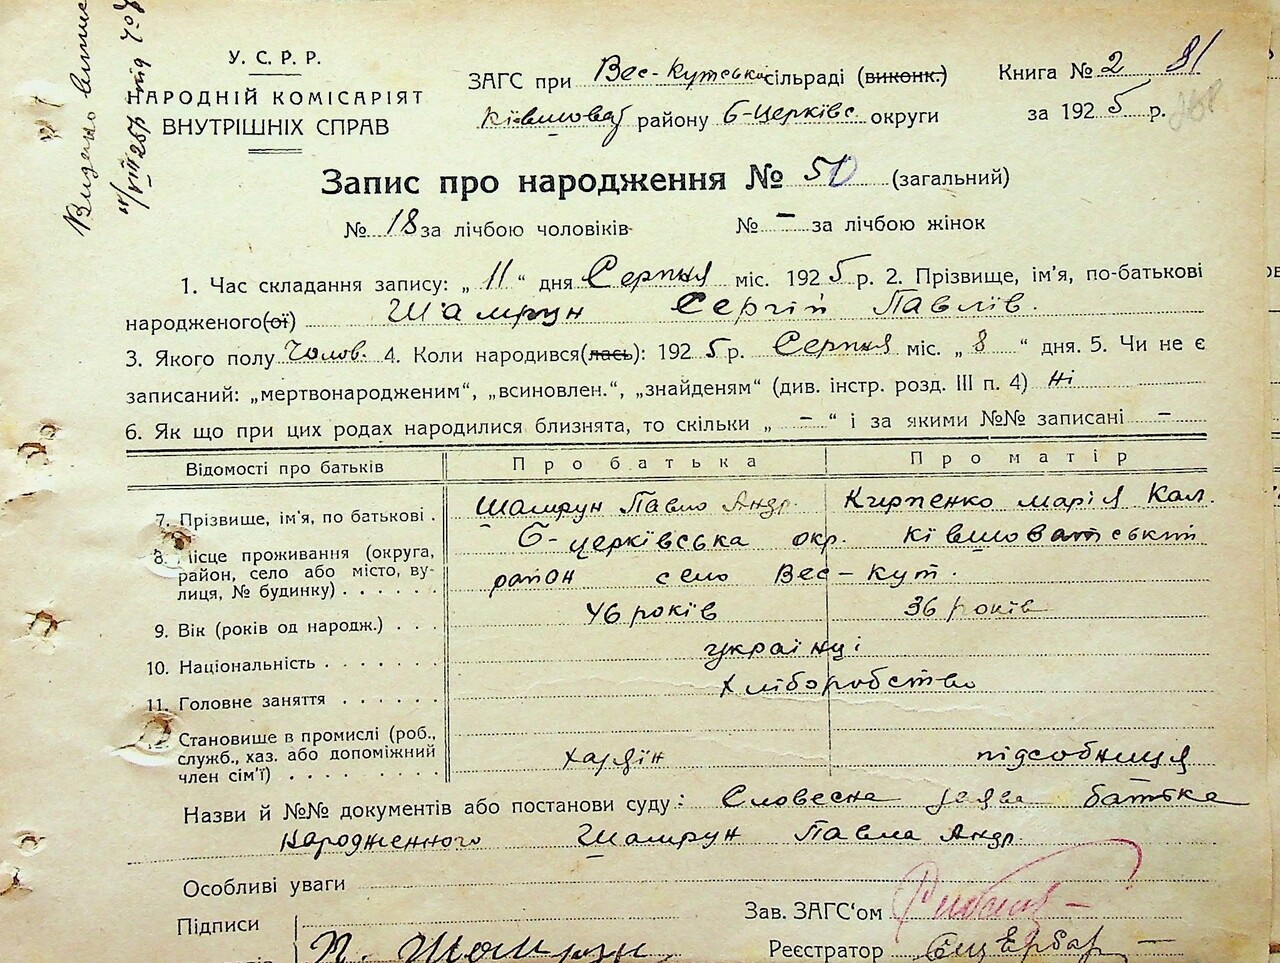 Видано випис
11/VIII 25р під № 
У. С. Р. Р.
НАРОДНІЙ КОМІСАРІЯТ
ВНУТРІШНІХ СПРАВ
ЗАГС при Вес-Кутській сільраді (виконк.)
Ківшоват району Б-Церківс. округи
Книга № 2 81
за 1925 р.
Запис про народження № 50 (загальний)
№ 18 за лічбою чоловіків № - за лічбою жінок
1. Час складання запису: „ 11 “ дня Серпня міс. 1925 р. 2. Прізвище, ім'я, по-батькові
народженого(ої) Шамрун Сергій Павлів.
3. Якого полу Чолов. 4. Коли народився(лась): 1925 р. Серпня міс. „ 8 “ дня. 5. Чи не є
записаний: „мертвонародженим“, „всиновлен.“, „знайденям“ (див. інстр. розд. III п. 4) ні
6. Як що при цих родах народилися близнята, то скільки „ - “ і за якими №№ записані -
Відомості про батьків Про батька Про матір
7. Прізвище, ім'я, по батькові . Шамрун Павло Андр. Кирпенко Марія Кал.
8. Місце проживання (округа, район, село або місто, вулиця, № будинку) . . . . . . Б-церківська окр. Ківшоватський
район село Вес-Кут.
9. Вік (років од народж.) . . . 46 років 36 років
10. Національність . . . . . . . українці
11. Головне заняття . . . . . . хліборобство
12. Становище в промислі (роб., служб., хаз. або допоміжний член сім'ї) . . . . . . . . . хазяїн підсобниця
Назви й №№ документів або постанови суду: Словесна заява батька
народженного Шамрун Павла Андр.
Особливі уваги
Підписи Зав. ЗАГС'ом
П. Шамрун Реєстратор